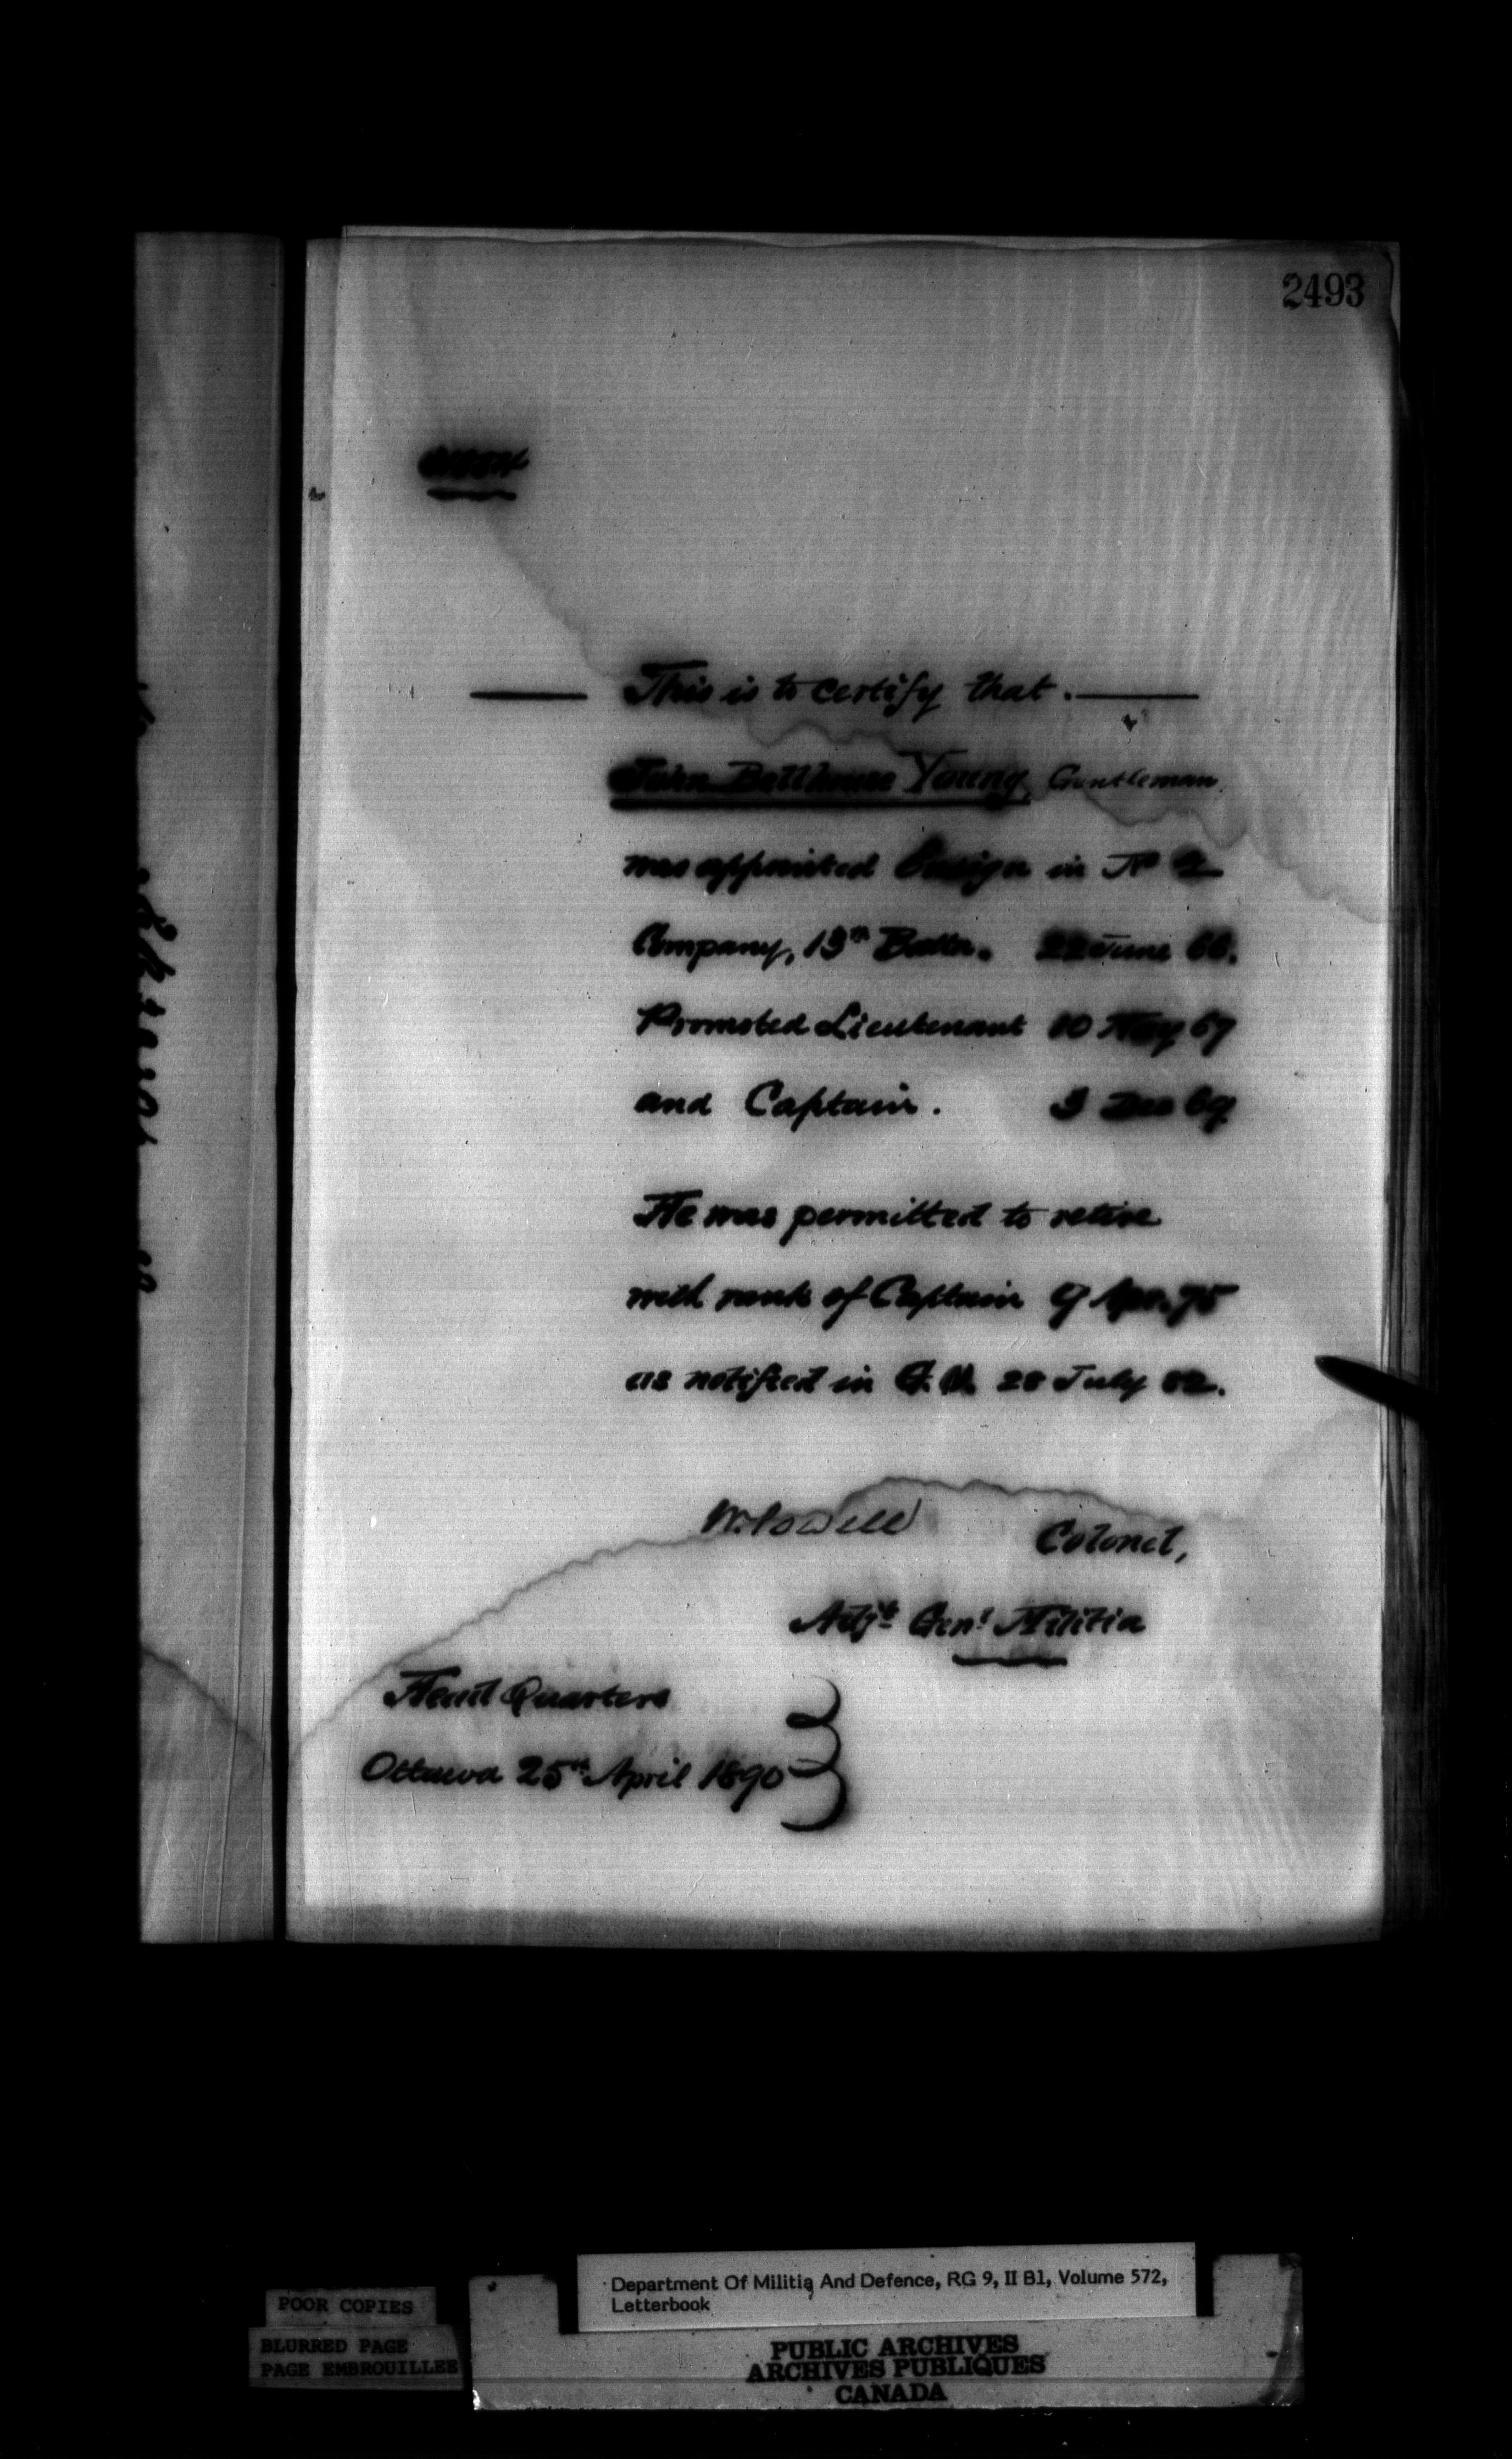 2493
This is to certify that.
John Bellhouse Young, Gentleman
was appointed Ensign in No 2
Company, 13th Battn. 22 June 66.
Promoted Lieutenant 10 May 67
and Captain. 3 Dec 69
He was permitted to retire
with rank of Captain 9 Apr. 75
as notified in G.O. 28 July 82.
W. Powell Colonel,
Adjt Genl Militia
Head Quarters
Ottawa 25th April 1890
Department Of Militia And Defence, RG 9, II B1, Volume 572,
Letterbook
POOR COPIES
BLURRED PAGE
PAGE EMBROUILLEE
PUBLIC ARCHIVES
ARCHIVES PUBLIQUES
CANADA